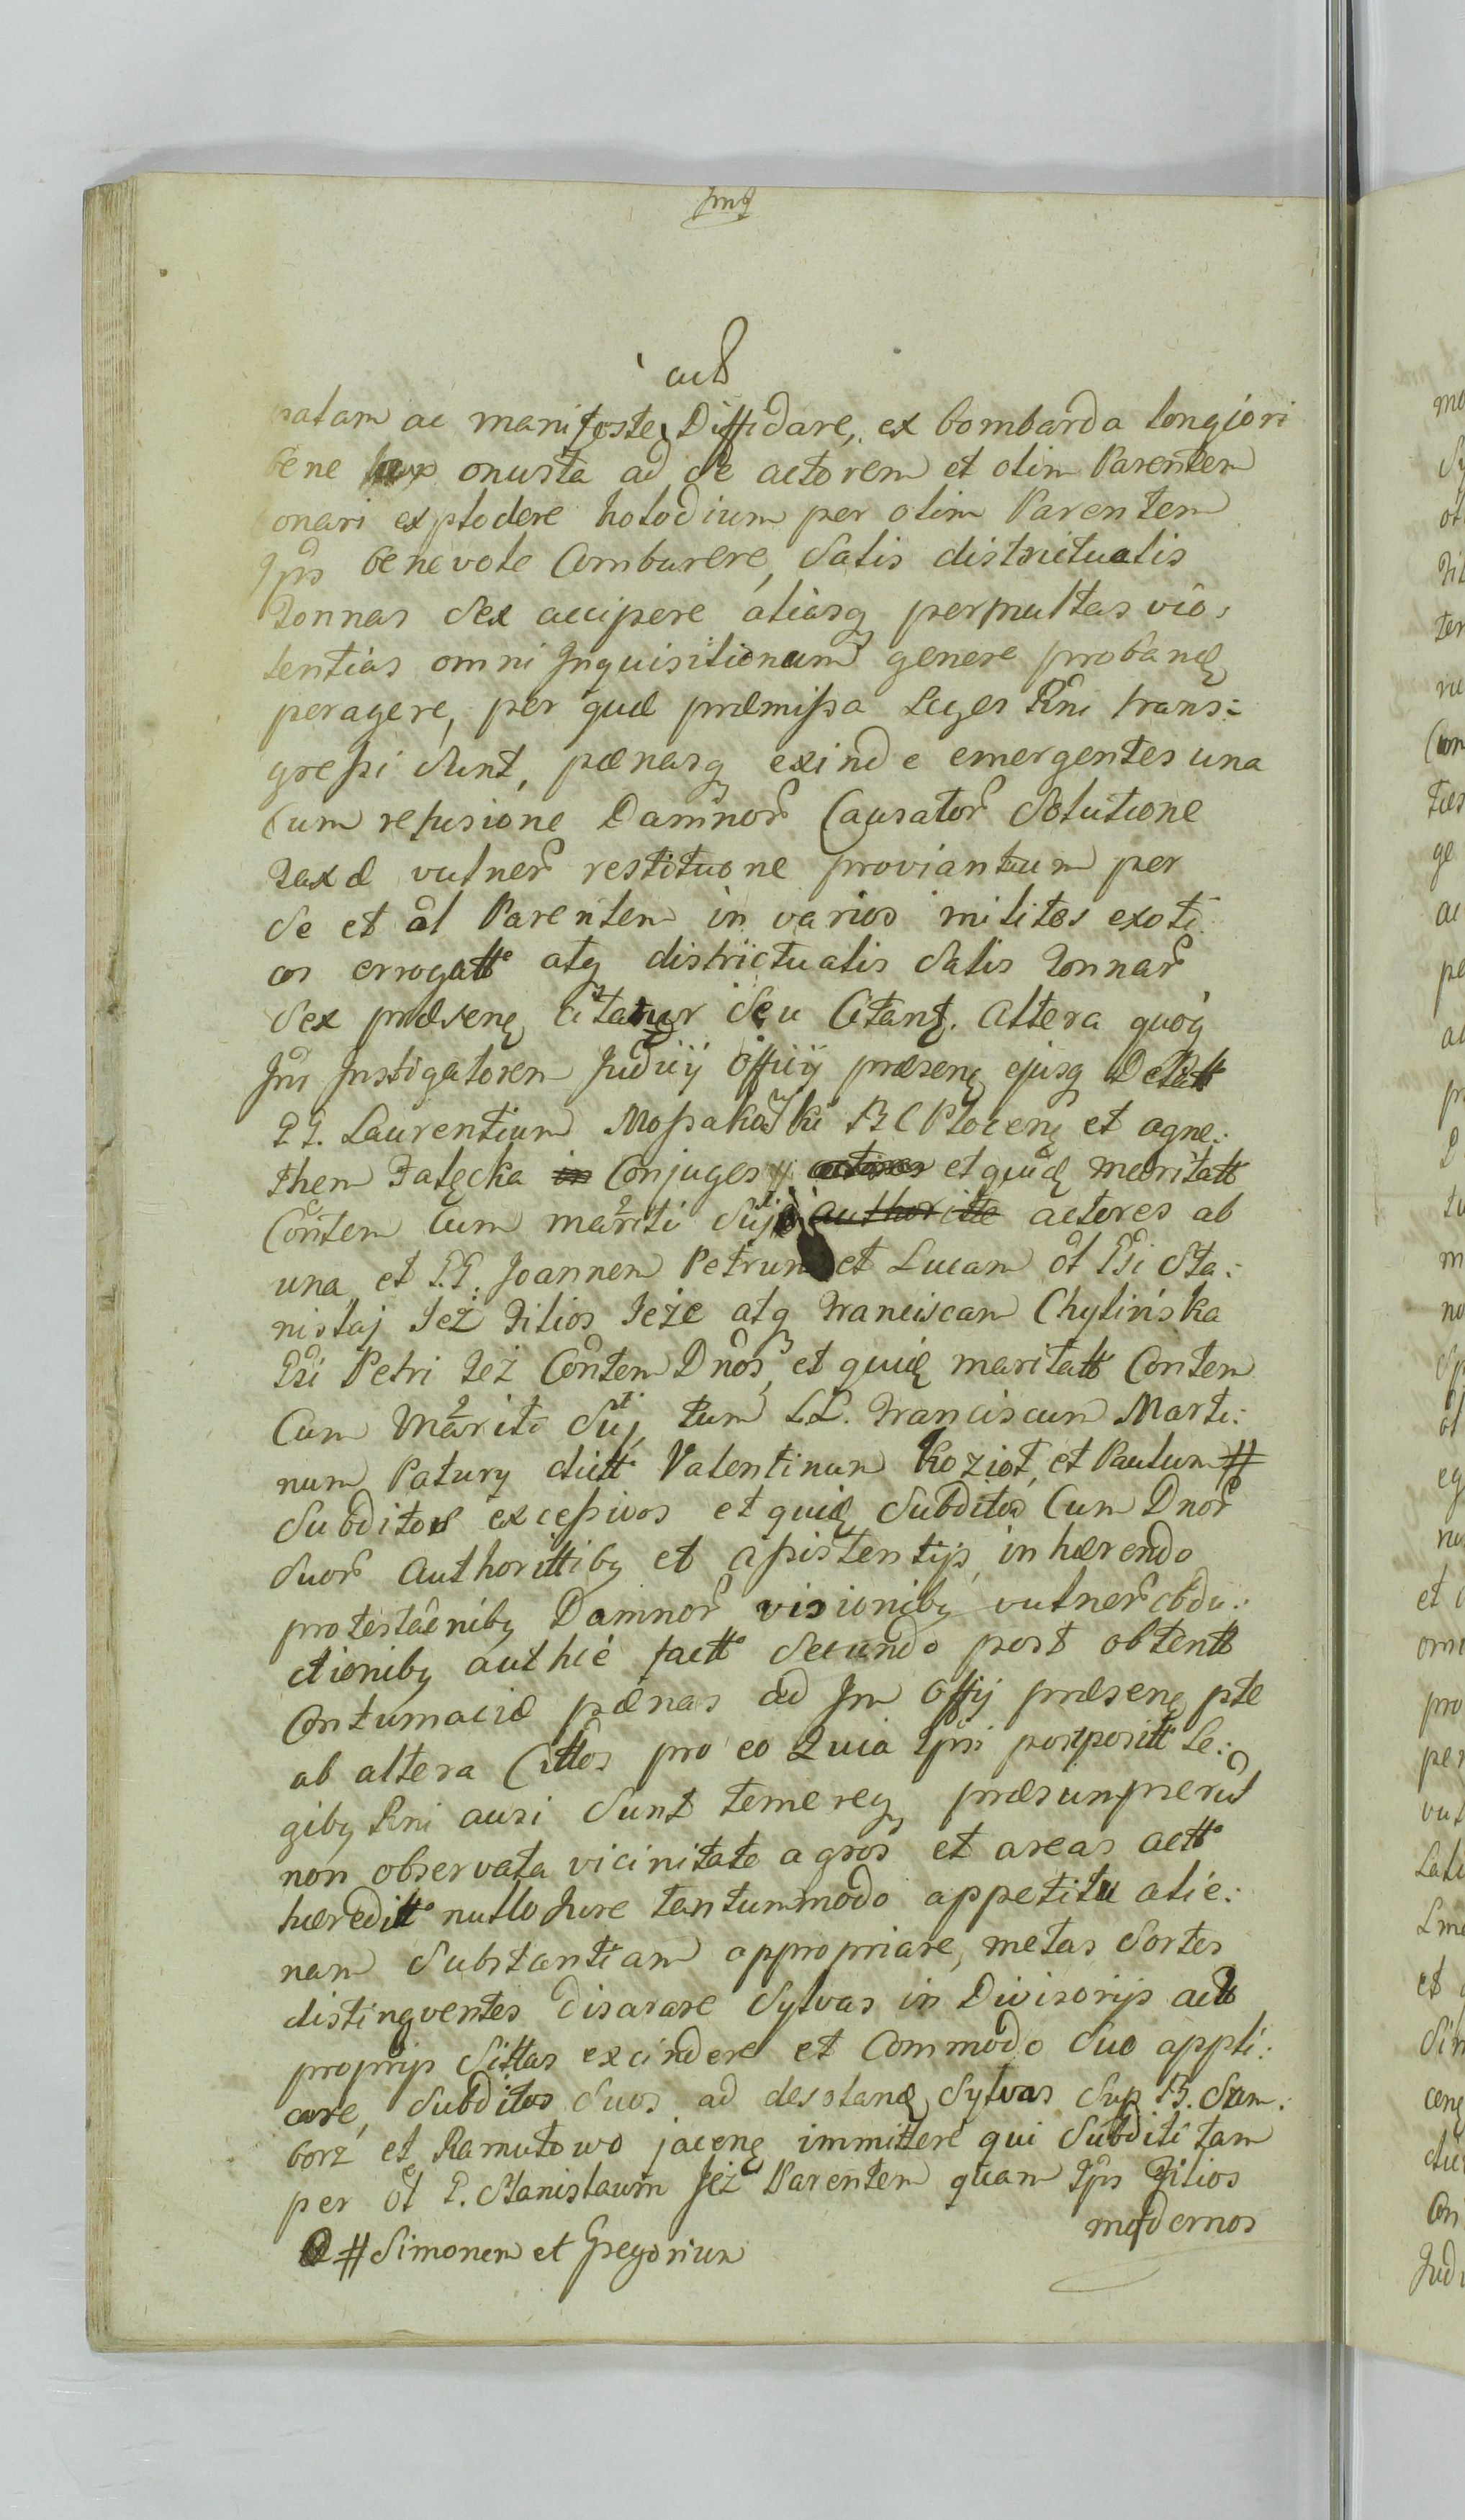 actt
palam ac manifeste Diffidare, ex bombarda longiori
bene onusta ad se actorem et olim Parentem
conari explodere holodium per olim Parentem
Ipõs benevole Comburere, Salis districtualis
Tonnas Sex accipere aliasq permultas vio:
lentias omni Inquisitionum genere probanę
peragere, per quæ præmissa Leges Rñi trans:
gressi Sunt, pænasq exinde emergentes una
Cum refusione Damnor Causator Solutione
Taxæ vulner restituone proviantuum per
Se et ol Parentem in varios milites exoti
cos errogatt atq districtualis Salis Tonnar
Sex præsenę Citatur Seu Citant. Altera quoq
Jm Instigatorem Judicij Officij præsenę ejusq Delatt
PP. Laurentium Mossakowski B C Plocenę et agne:
them Falęcka in Conjuges actores et quidę maritatt
Contem Cum mariti Sui authoritte actores ab
una et P.P. Joannem Petrum et Lucam ol Psi Sta:
nislaj Jeż Filios Jeże atq Franciscam Chylińska
Psi Petri Jeż Contem Dnos, et quię maritatt Contem
Cum Mariti Sui, tum L.L. Franciscum Marti:
num Patury dictt Valentinum Kozioł, et Paulum #
Subditos excessivos et quię Subditos Cum Dnor
Suor Authorittibq et assistentijs, inhærendo
protestaõnibq Damnor visionibq vulner obdu:
ctionibq authcè factt Secundo post obtentt
Contumaciæ pænas ad Jm Offij præsenę pte
ab altera Cittos pro eo Quia Ipsi postpositt Le:
gibq Rni ausi Sunt temereq præsumpserut
non observata vicinitate agros et areas actt
hæreditt nullo Jure tantummodo appetitu alie:
nam Substantiam appropriare, metas Sortes
distinqventes disarare Sylvas in Divisorijs actt
proprijs Sittas excindere et Commodo Suo appli:
care, Subditos Suos ad desolanę Sylvas Sup B. Sam:
borz et Ramutowo jacenę immittere qui Subditi tam
per ol P. Stanislaum Jeż Parentem quam Ipõs Filios
modernos
# Simonem et Gregorium